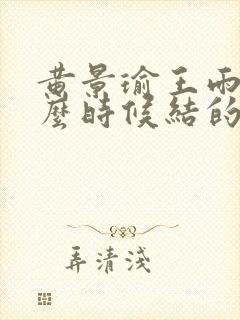 黄景瑜王雨
麼時候結的
弄清淺